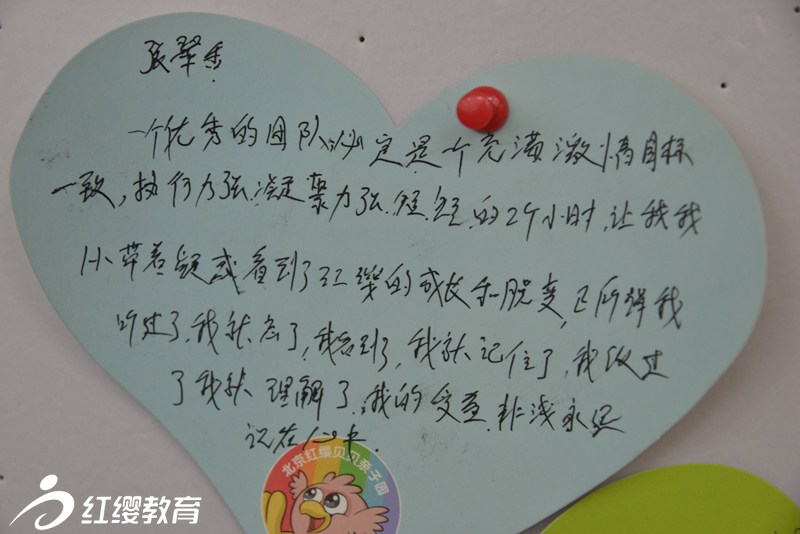 张翠香
一个优秀的团队必定是个充满激情目标
一致,执行力强.凝聚力强.短短的2个小时,让我我
们带着疑惑看到了红缨的成长和脱变,已所谓我
听过了.我就忘了,我看到了,我就记住了,我做过
了我就理解了.我的受益非浅永远
记在心中.
北京红缨贝贝亲子园
红缨教育